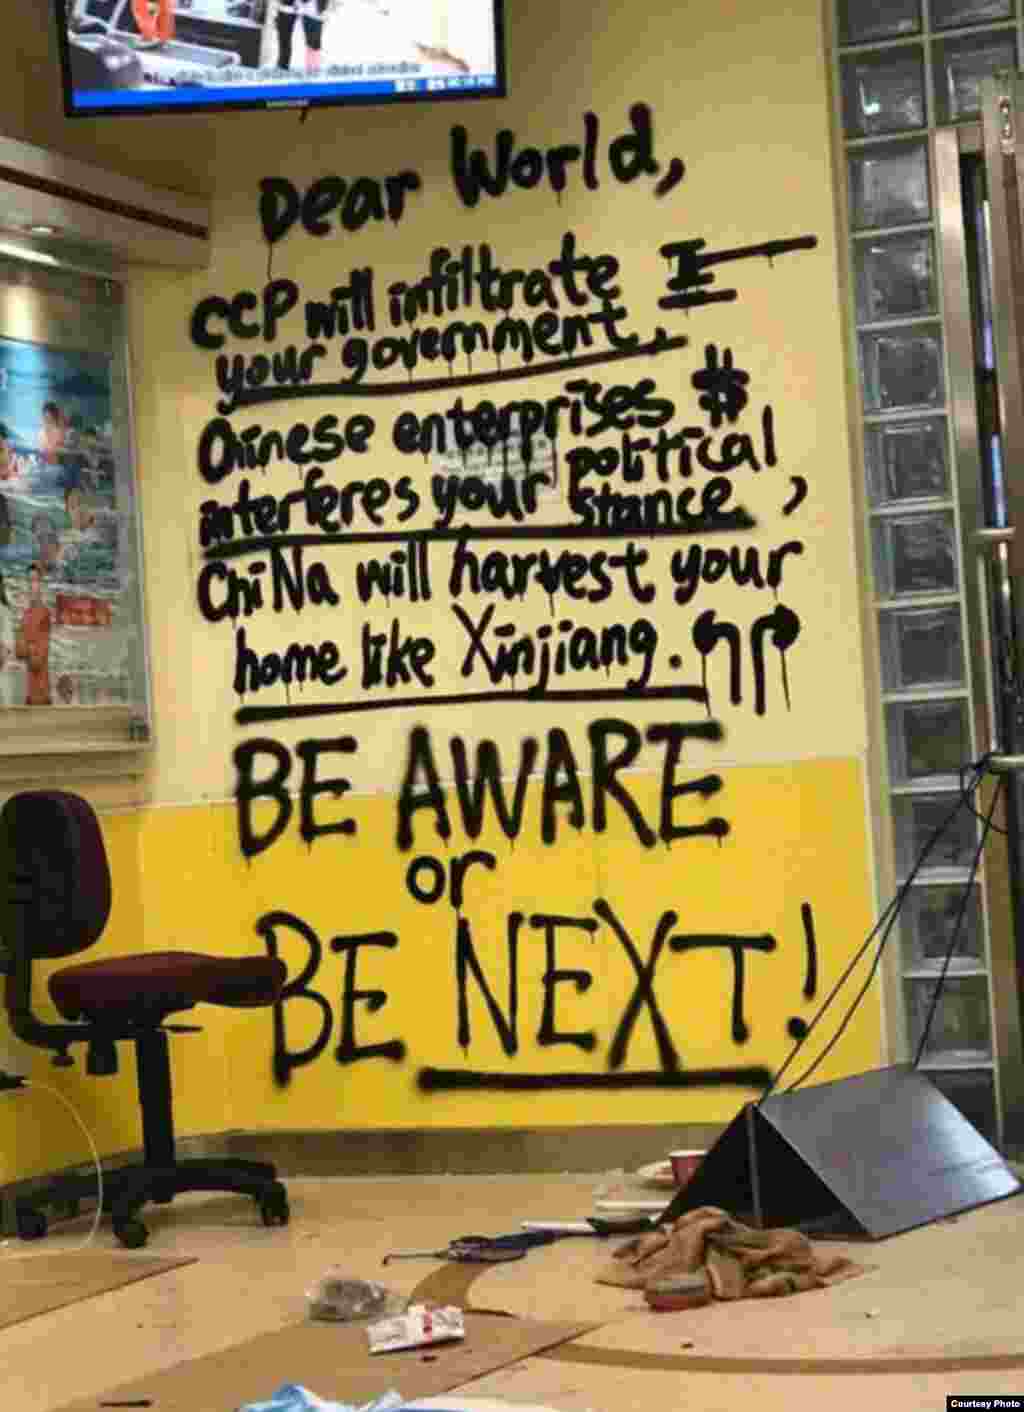 Dear World,
CCP will infiltrate
your government.
Chinese enterprises #
interferes your political
stance,
ChiNa will harvest your
home like Xinjiang.
BE AWARE
or
BE NEXT!
Courtesy Photo